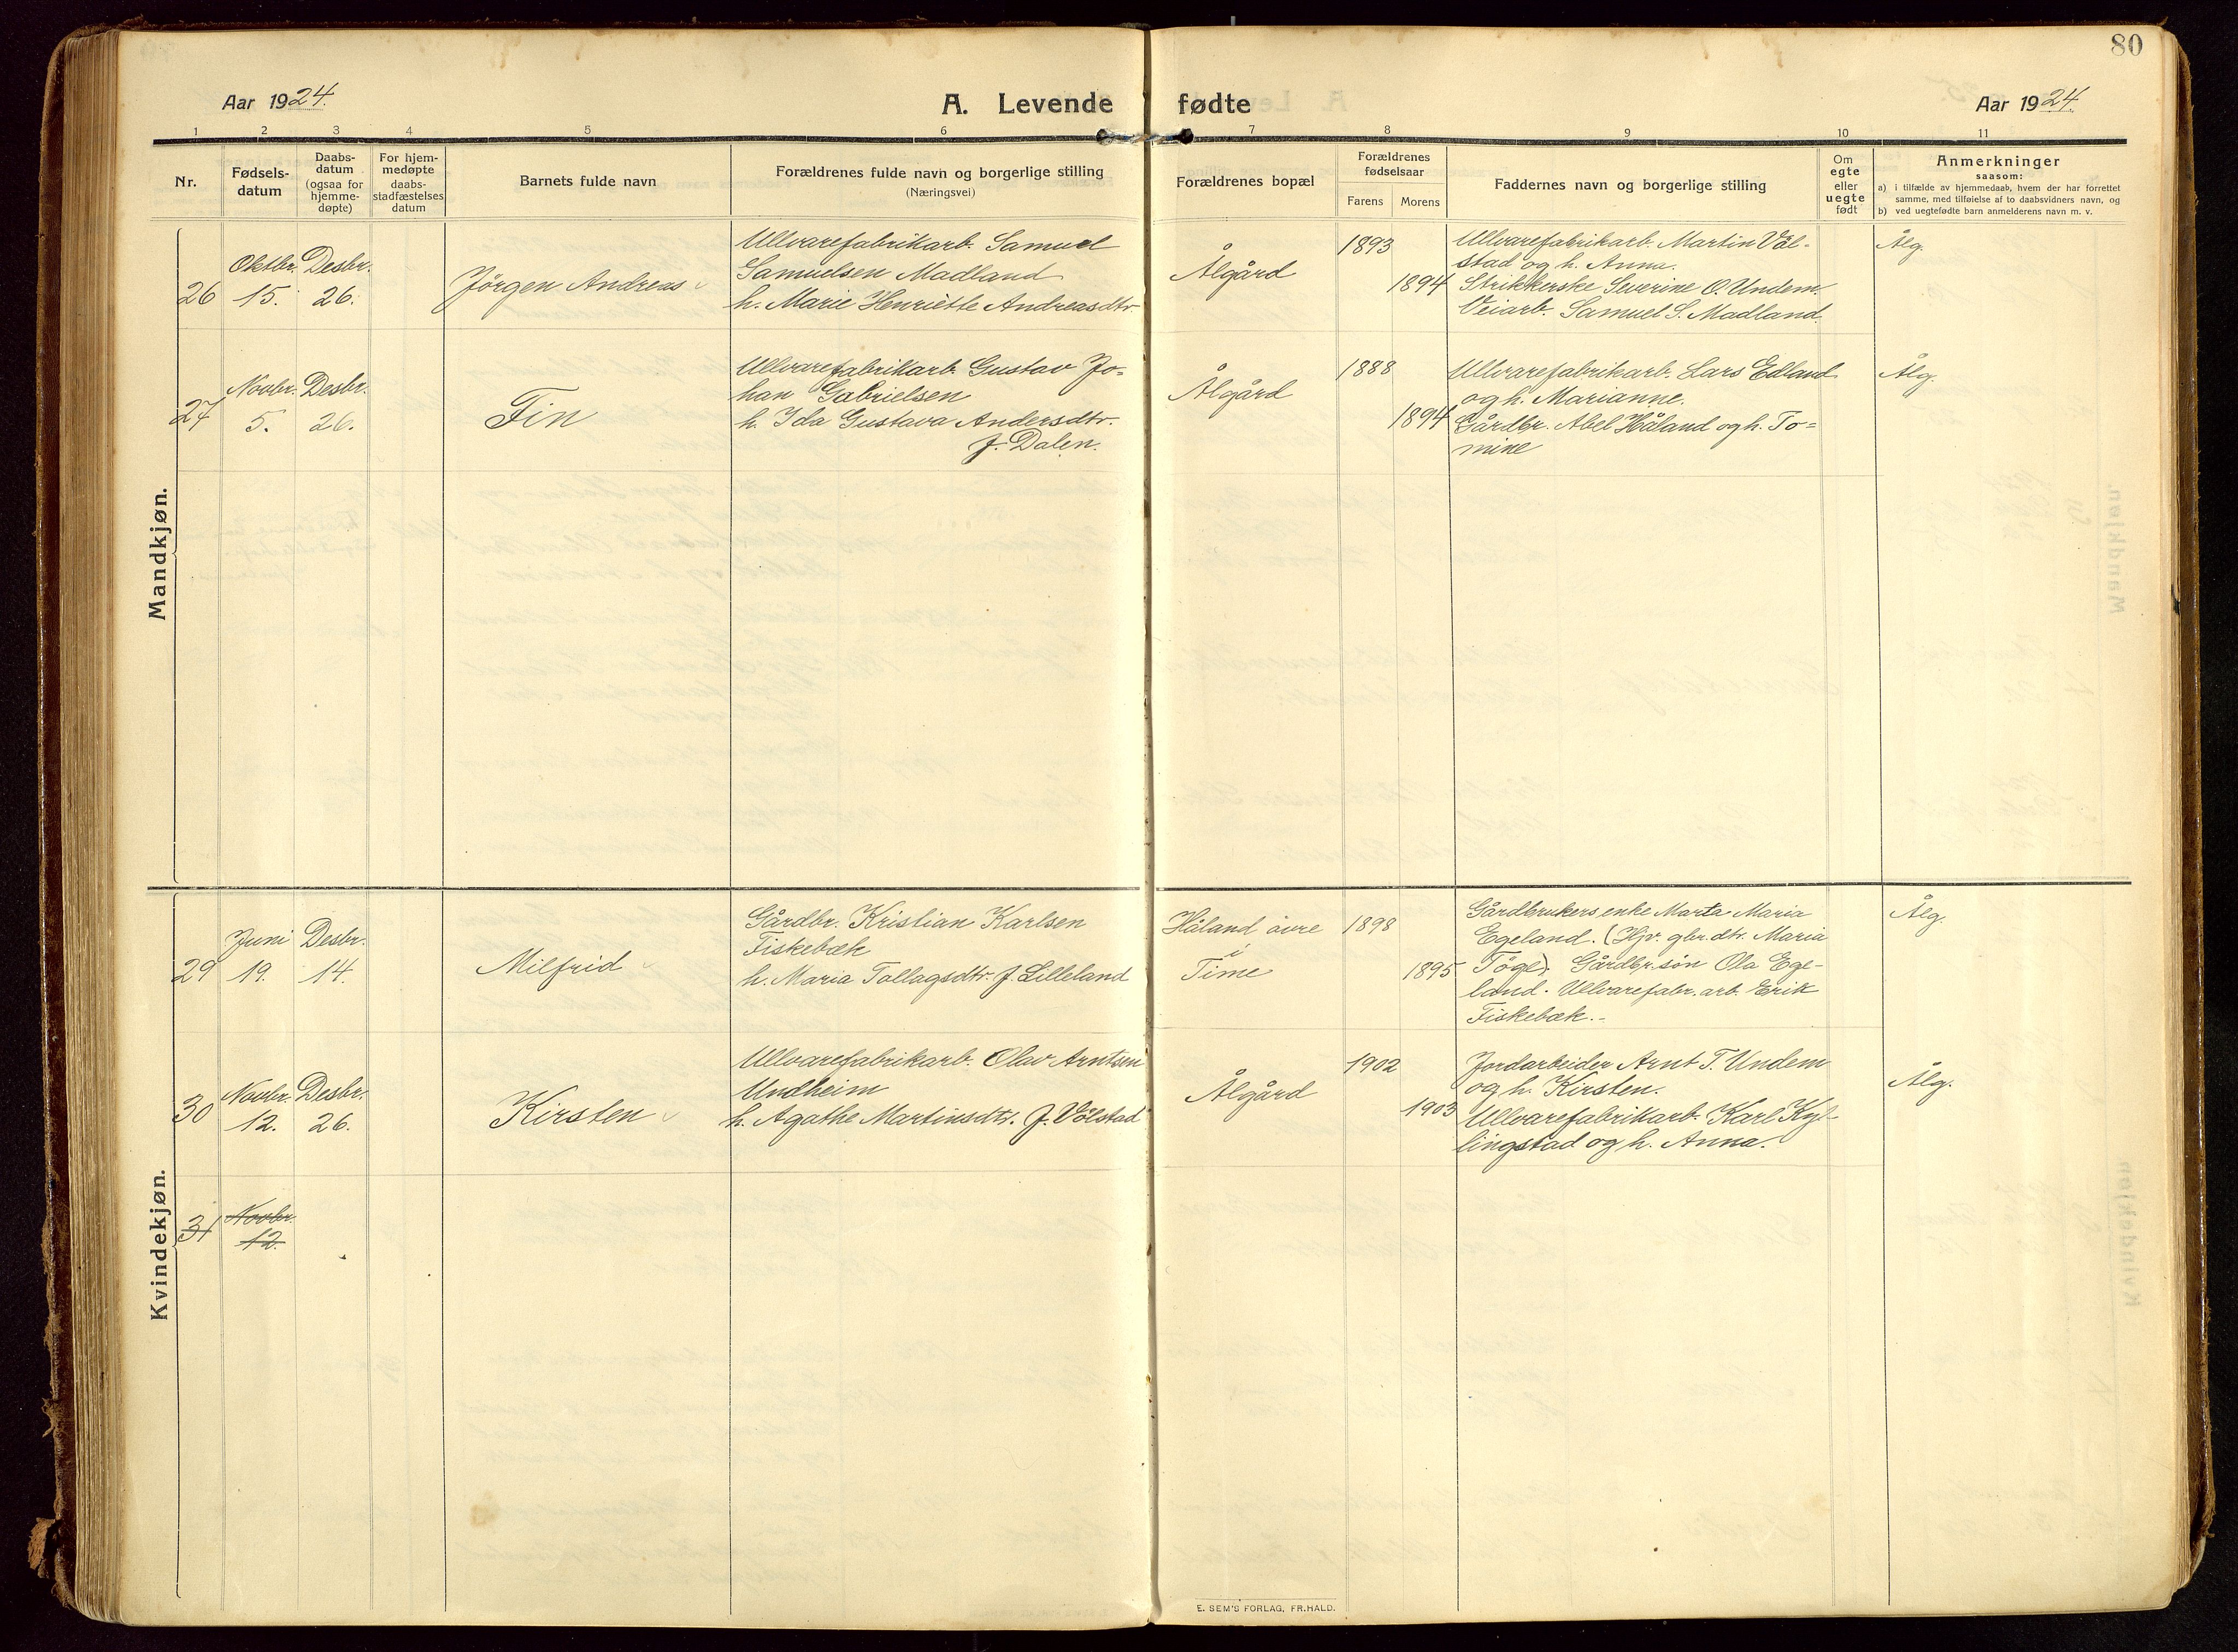 80
Aar 1924.
A. Levende fødte
Aar 1924.
1 2 3 4 5 6 7 8 9 10 11
Nr.
Fødsels-
datum
Daabs-
datum
(ogsaa for
hjemme-
døpte)
For hjem-
medøpte
daabs-
stadfæstelses
datum
Barnets fulde navn
Forældrenes fulde navn og borgerlige stilling
(Næringsvei)
Forældrenes bopæl
Forældrenes
fødselsaar
Farens Morens
Faddernes navn og borgerlige stilling
Om
egte
eller
uegte
født
Anmerkninger
saasom:
a) i tilfælde av hjemmedaab, hvem der har forrettet
samme, med tilføielse af to daabsvidners navn, og
b) ved uegtefødte barn anmelderens navn m. v.
Mandkjøn.
26
Oktbr.
15.
Desbr.
26.
Jörgen Andreas
Ullvarefabrikarb. Samuel
Samuelsen Madland
h. Marie Henriette Andreasdtr.
Ålgård
1893
1894
Ullvarefabrikarb. Martin Vål-
stad og h. Anna.
Strikkerske Severine O. Undem.
Veiarb. Samuel S. Madland.
Ålg.
27
Novbr.
5.
Desbr.
26.
Fin
Ullvarefabrikarb. Gustav Jo=
han Gabrielsen
h. Ida Gustava Andersdtr.
f. Dalen.
Ålgård
1888
1894
Ullvarefabrikarb. Lars Edland
og h. Marianne.
Gårdbr. Abel Håland og h. To=
mine
Ålg.
Kvindekjøn.
29
Juni
19.
Desbr.
14.
Milfrid
Gårdbr. Kristian Karlsen
Fiskebæk
h. Maria Tollagsdtr. f. Lilleland
Håland övre
i
Time
1898
1895
Gårdbrukers enke Marta Maria
Egeland. (Hjv. gbr. dtr. Maria
Töge). Gårdbr. sön Ola Ege-
land. Ullvarefabr. arb. Erik
Fiskebæk.-
Ålg.
30
Novbr.
12.
Desbr.
26.
Kirsten
Ullvarefabrikarb. Olav Arntsen
Undheim
h. Agathe Martinsdtr. f. Völstad
Ålgård
1902
1903
Jordarbeider Arnt T. Undem
og h. Kirsten.
Ullvarefabrikarb. Karl Kyl-
lingstad og h. Anna.
Ålg.
31
Novbr.
12.
E. SEM'S FORLAG, FR.HALD.